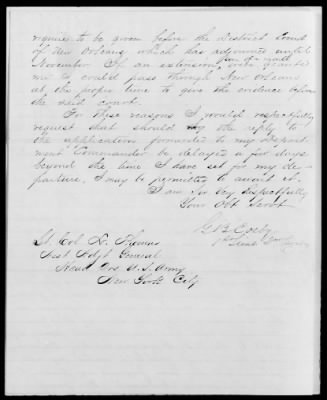 require to be given before the District Court
of New Orleans, which has adjourned until
November. If an extension, were granted
me I could pass through New Orleans
at the proper time to give the evidence before
the said court.
For these reasons I would respectfully
request that should my the reply to
the application forwarded to my Depart-
ment Commander be delayed a few days
beyond the time I have set for my de-
parture, I may be permitted to await it.
I am Sir Very Respectfully
Your Obt Servt
G B Cosby
1st Lieut
Lt. Col. L. Thomas
Asst Adjt General
Head Qrs U. S. Army
New York City